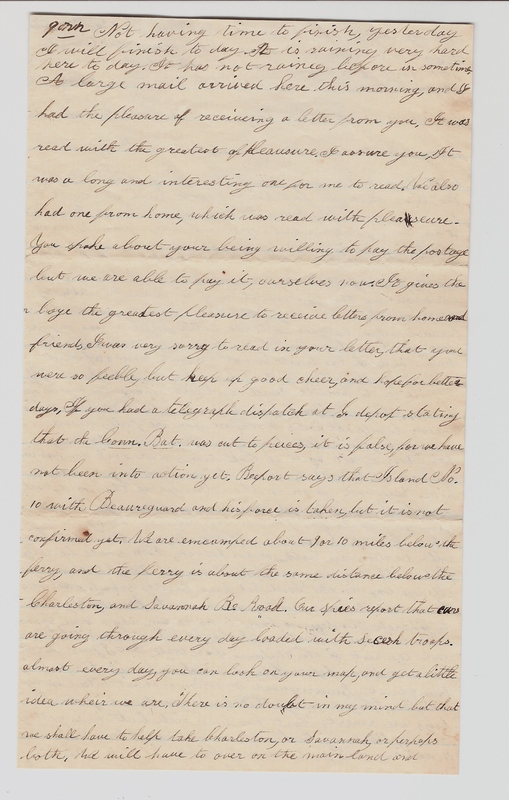 Not having time to finish, yesterday
I will finish to day. It is raining very hard
here to day. It has not rainey before in sometime
A large mail arrived here this morning, and I
had the pleasure of receiveing a letter from you, It was
read with the greatest of pleausure, I assure you, It
was a long and interesting one for me to read, We also
had one from home, which was read with pleasseure.
You spoke about your being willing to pay the postage
but we are able to pay it, ourselves now. It gives the
boys the greatest pleasure to receive letters from home and
friends, I was very sorry to read in your letter, that you
were so feeble, but keep up good cheer, and hope for better
days, If you had a telegraph dispatch at S depot stating
that the Conn. Bat. was cut to peices, it is false, for we have
not been into action yet. Report says that Island No.
10 with Beaureguard and his force is taken, but it is not
confirmed yet. We are emcamped about 9 or 10 miles below the
ferry, and the ferry is about the same distance below the
Charleston, and Savannah R. Road. Our spies report that cars
are going through every day loaded with secesh troops.
almost every day, you can look on your map, and get a little
idea wheir we are, There is no doubt in my mind but that
we shall have to help take Charleston, or Savannah, or perhaps
both, We will have to over on the main land and